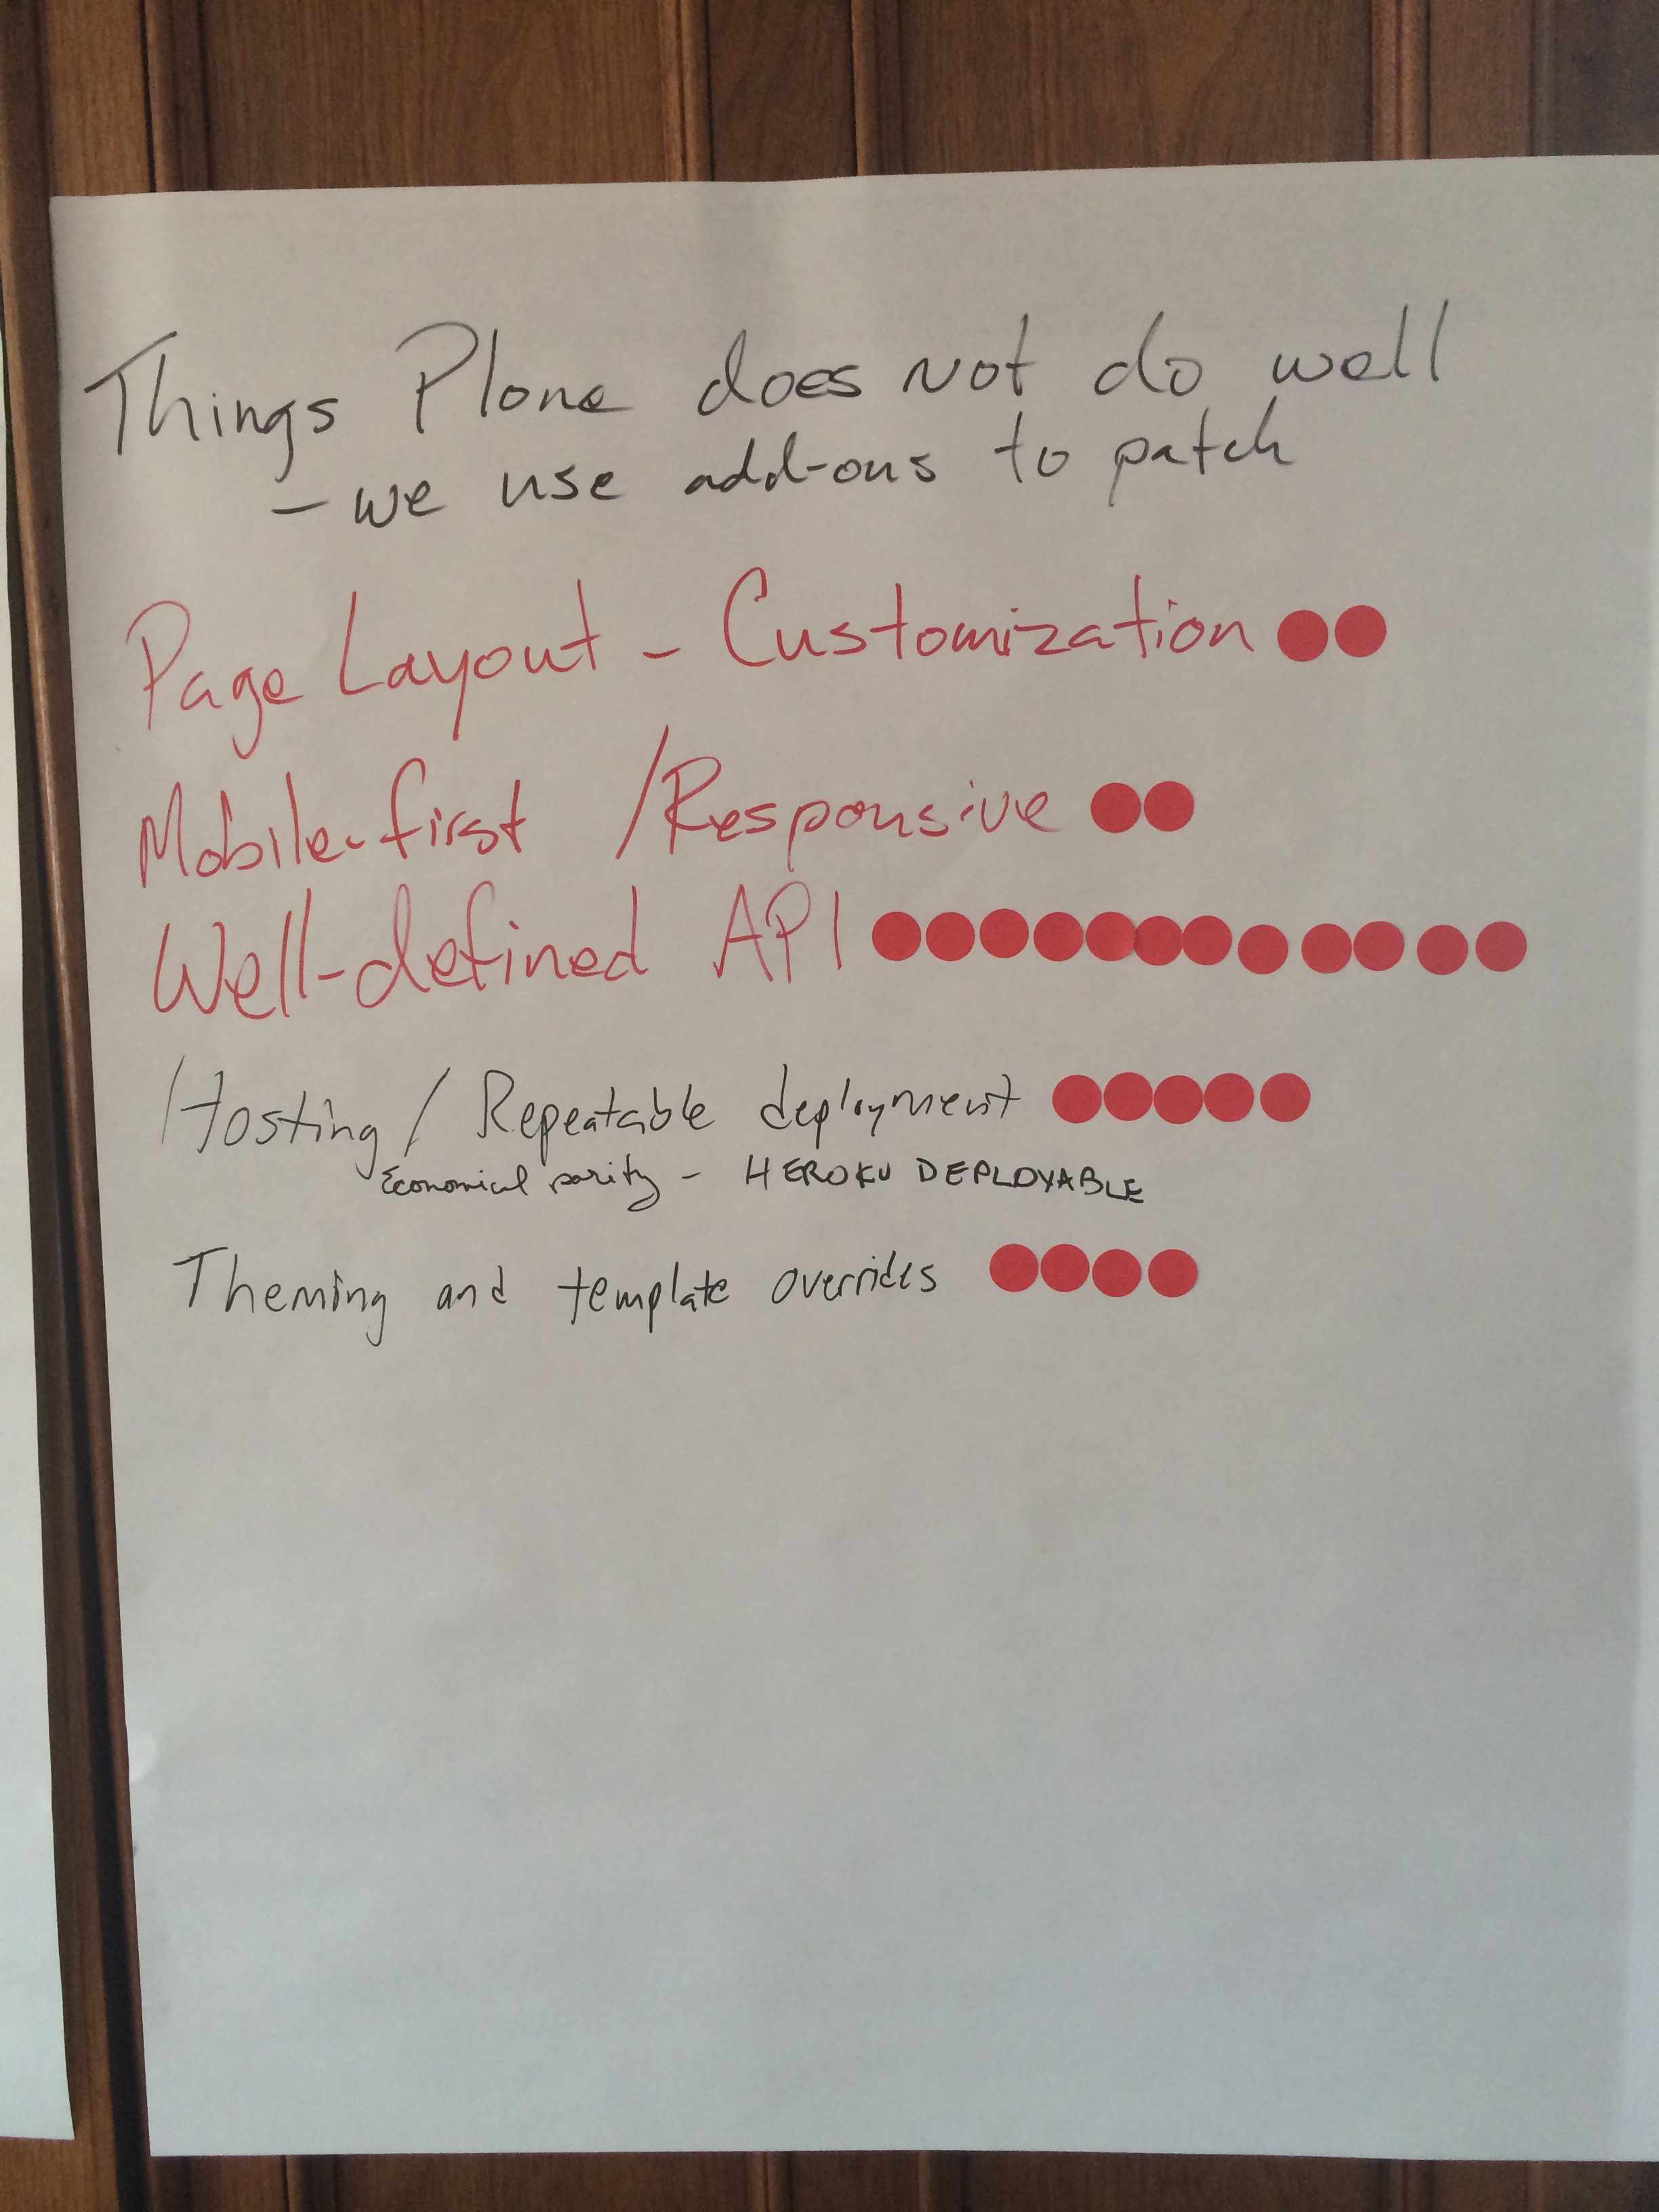 Things Plone does not do well
- we use add-ons to patch
Page Layout - Customization
Mobile-first /Responsive
Well-defined API
Hosting / Repeatable deployment
Economical parity - HEROKU DEPLOYABLE
Theming and template overrides